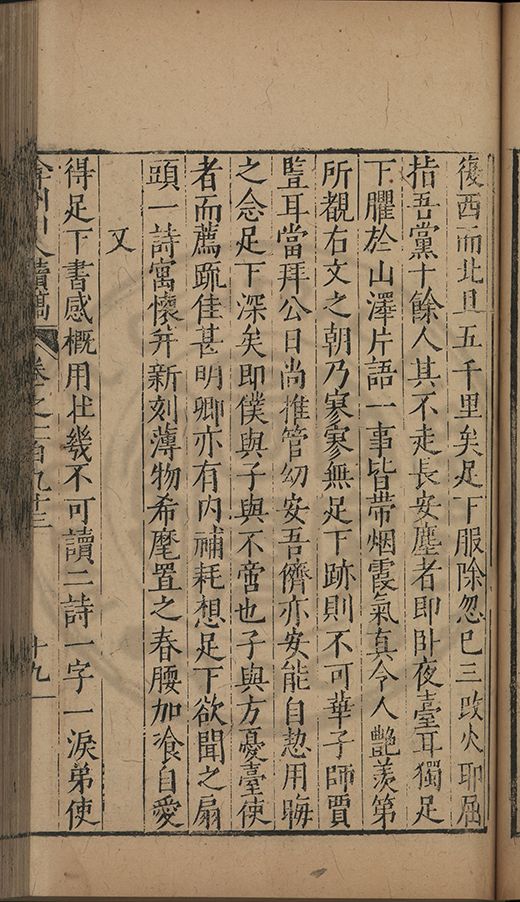 復西而北且五千里矣足下服除忽已三改火耶屈
指吾黨十餘人其不走長安塵者即卧夜臺耳獨足
下臞於山澤片語一事皆帶烟霞氣真令人艷羡第
所覯右文之朝乃寥寥無足下跡則不可華子師賈
豎耳當拜公日尚推管幼安吾儕亦安能自恝用晦
之念足下深矣即僕與子與不啻也子與方憂臺使
者而薦疏佳甚明卿亦有内補耗想足下欲聞之扇
頭一詩寓懷并新刻薄物希麾置之春腰加飡自愛
又
得足下書感概用壯幾不可讀二詩一字一淚弟使
弇州山人續稿 卷之一百九十三 十九